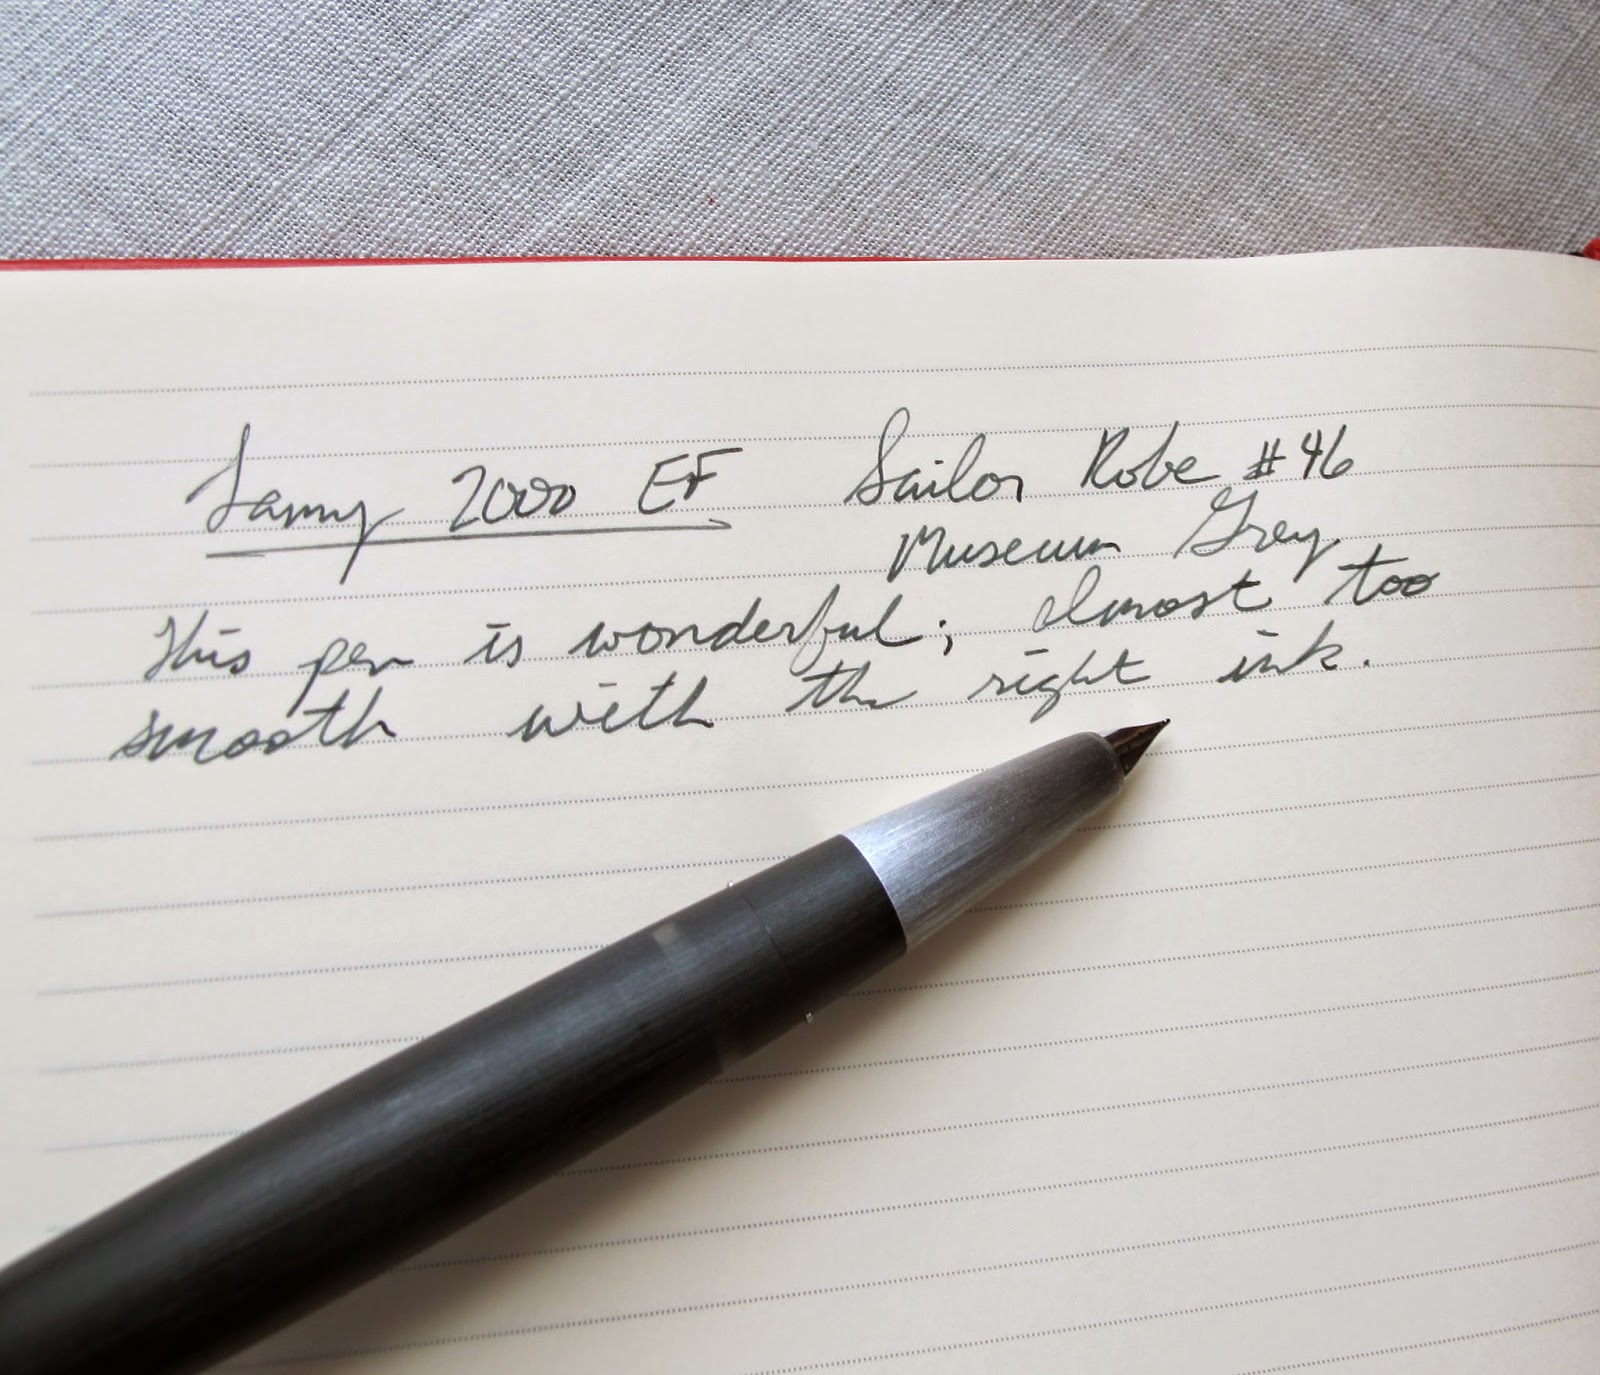 Lamy 2000 EF Sailor Kobe #46
Museum Grey.
This pen is wonderful; almost too
smooth with the right ink.